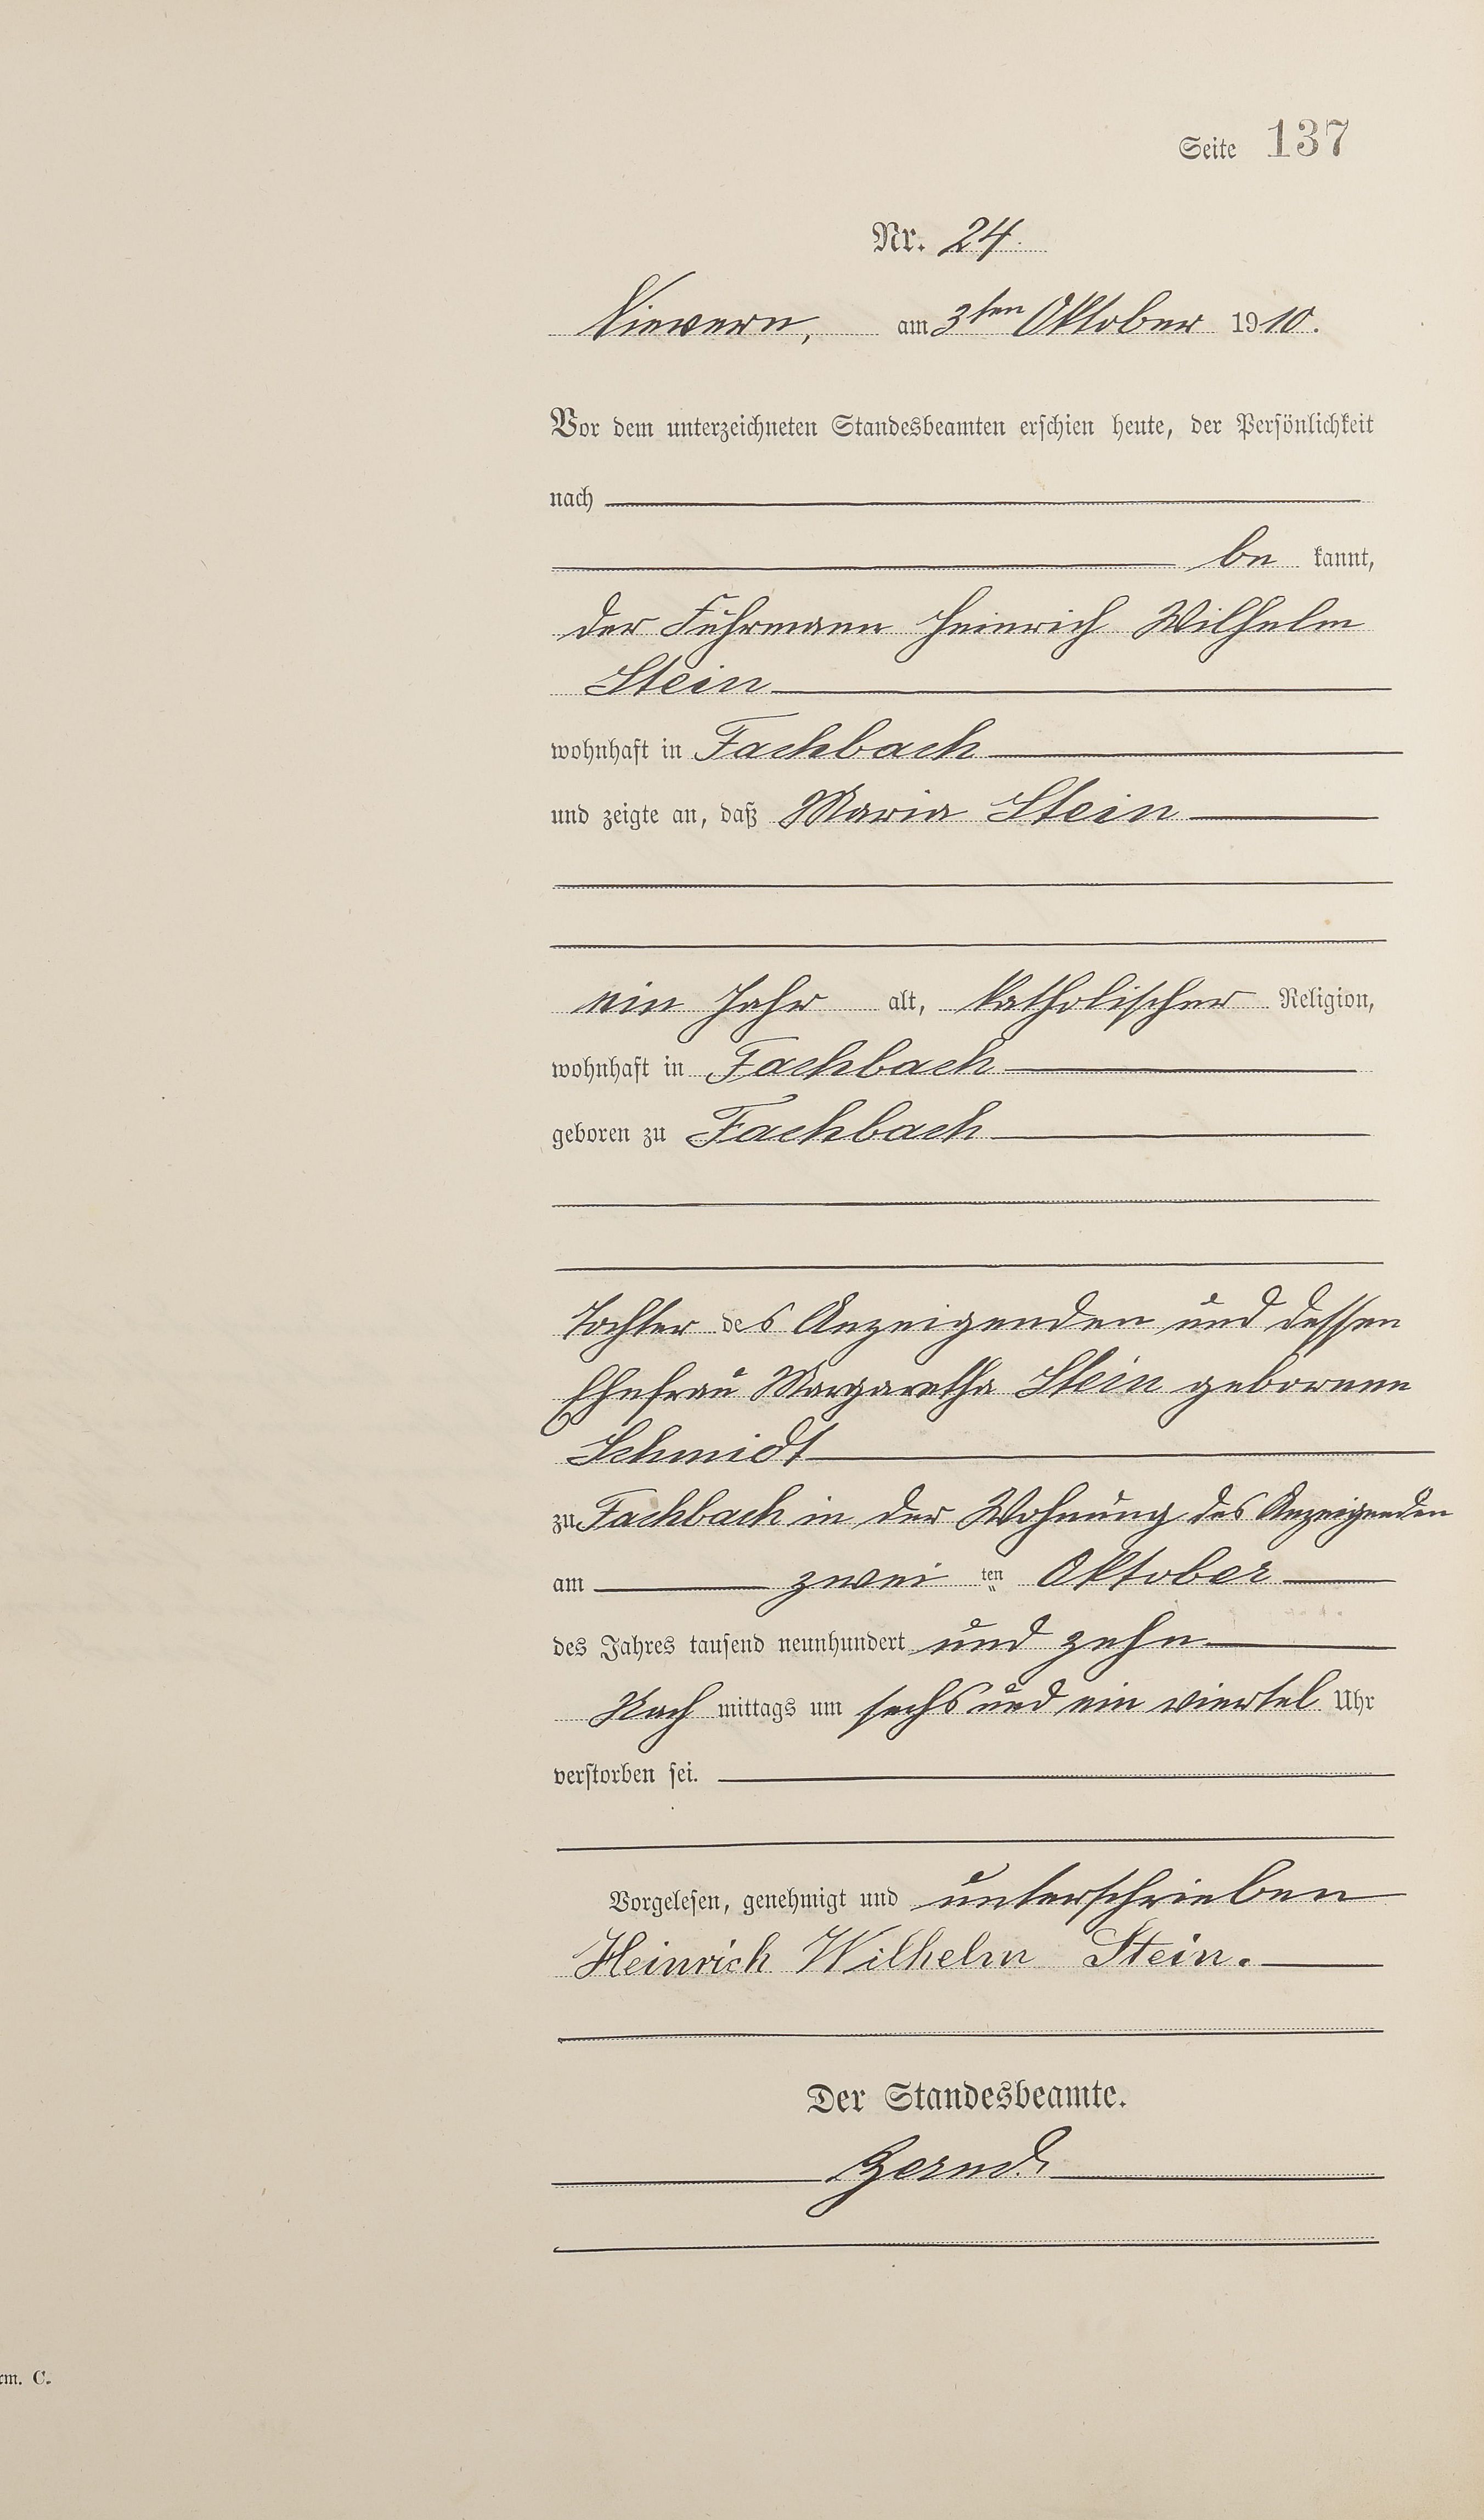 Seite 137
Nr. 24.
Nievern, am 3ten Oktober 1910.
Vor dem unterzeichneten Standesbeamten erschien heute, der Persönlichkeit
nach
be kannt,
der Fuhrmann Heinrich Wilhelm
Stein
wohnhaft in Fachbach
und zeigte an, daß Maria Stein
ein Jahr alt, katholischer Religion,
wohnhaft in Fachbach
geboren zu Fachbach
Tochter des Anzeigenden und dessen
Ehefrau Margaretha Stein geborenen
Schmidt
zu Fachbach in der Wohnung des Anzeigenden
am zwei ten Oktober
des Jahres tausend neunhundert und zehn
Nach mittags um sechs und ein viertel Uhr
verstorben sei.
Vorgelesen, genehmigt und unterschrieben
Heinrich Wilhelm Stein.
Der Standesbeamte.
rm. C.